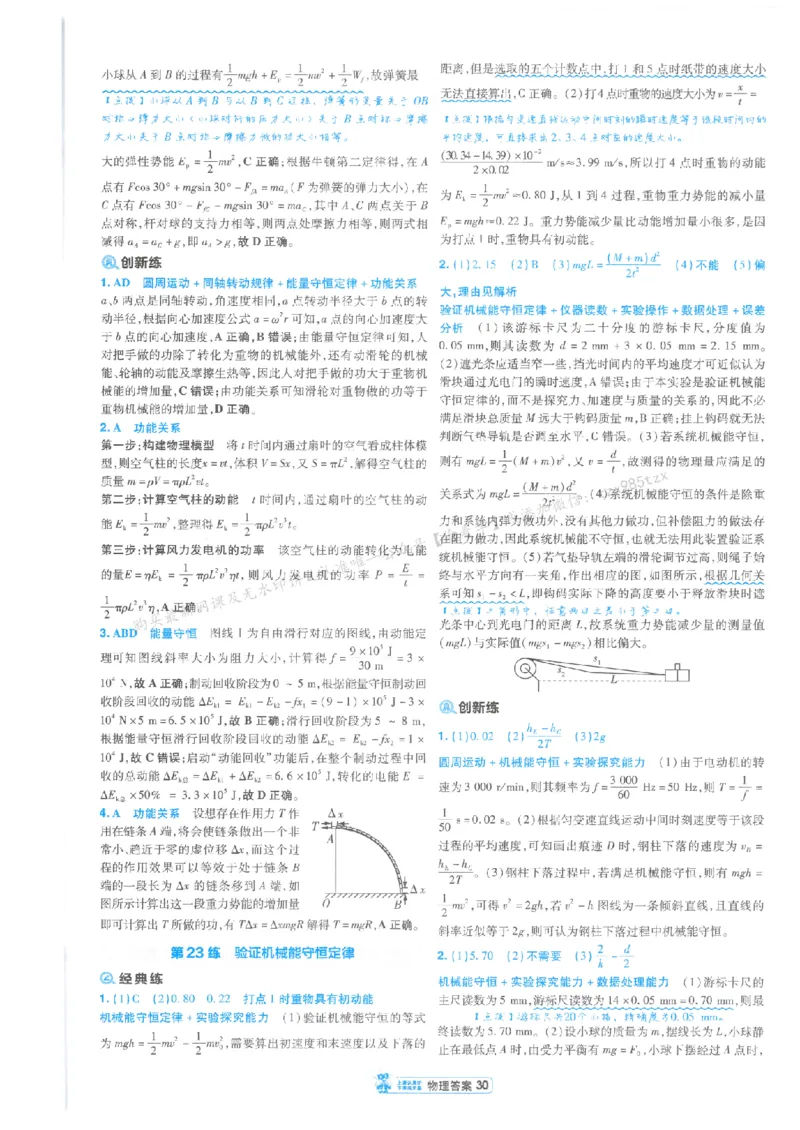 小球从 A 到 B 的过程有 1/2 mgh + E_p = 1/2 mv² + 1/2 W_f,故弹簧最
【点拨】小球从 A 到 B 与从 B 到 C 过程，弹簧形变量关于 OB
对称⇒弹力大小(小球对杆的压力大小)关于 B 点对称⇒摩擦
力大小关于 B 点对称⇒摩擦力做的功大小相等。
大的弹性势能 E_p = 1/2 mv²,C 正确;根据牛顿第二定律得,在 A
点有 Fcos 30° + mgsin 30° − F_fA = ma_A(F 为弹簧的弹力大小),在
C 点有 Fcos 30° − F_fC − mgsin 30° = ma_C,其中 A、C 两点关于 B
点对称,杆对球的支持力相等,则两点处摩擦力相等,则两式相
减得 a_A = a_C + g,即 a_A > g,故 D 正确。
创新练
1. AD 圆周运动 + 同轴转动规律 + 能量守恒定律 + 功能关系
a、b 两点是同轴转动,角速度相同,a 点转动半径大于 b 点的转
动半径,根据向心加速度公式 a = ω²r 可知,a 点的向心加速度大
于 b 点的向心加速度,A 正确,B 错误;由能量守恒定律可知,人
对把手做的功除了转化为重物的机械能外,还有动滑轮的机械
能、轮轴的动能及摩擦生热等,因此人对把手做的功大于重物机
械能的增加量,C 错误;由功能关系可知滑轮对重物做的功等于
重物机械能的增加量,D 正确。
2. A 功能关系
第一步:构建物理模型 将 t 时间内通过扇叶的空气看成柱体模
型,则空气柱的长度 x = vt,体积 V = Sx,又 S = πL²,解得空气柱的
质量 m = ρV = πρL²vt。
第二步:计算空气柱的动能 t 时间内,通过扇叶的空气柱的动
能 E_k = 1/2 mv²,整理得 E_k = 1/2 πρL²v³t。
第三步:计算风力发电机的功率 该空气柱的动能转化为电能
的量 E = ηE_k = 1/2 πρL²v³ηt,则风力发电机的功率 P = E/t =
1/2 πρL²v³η,A 正确。
3. ABD 能量守恒 图线 I 为自由滑行对应的图线,由动能定
理可知图线斜率大小为阻力大小,计算得 f = 9×10⁵ J/30 m = 3×
10⁴ N,故 A 正确;制动回收阶段为 0 ~ 5 m,根据能量守恒制动回
收阶段回收的动能 ΔE_k1 = E_k1 − E_k2 − fx₁ = (9−1)×10⁵ J − 3×
10⁴ N×5 m = 6.5×10⁵ J,故 B 正确;滑行回收阶段为 5 ~ 8 m,
根据能量守恒滑行回收阶段回收的动能 ΔE_k2 = E_k2 − fx₂ = 1×
10⁴ J,故 C 错误;启动“动能回收”功能后,在整个制动过程中回
收的总动能 ΔE_k总 = ΔE_k1 + ΔE_k2 = 6.6×10⁵ J,转化的电能 E =
ΔE_k总×50% = 3.3×10⁵ J,故 D 正确。
4. A 功能关系 设想存在作用力 T 作
用在链条 A 端,将会使链条做出一个非
常小、趋近于零的虚位移 Δx,而这个过
程的作用效果可以等效于处于链条 B
端的一段长为 Δx 的链条移到 A 端,如
图所示计算出这一段重力势能的增加量
Δx
T
A
Δx
O
B
即可计算出 T 所做的功,有 TΔx = ΔxmgR 解得 T = mgR,A 正确。
第 23 练 验证机械能守恒定律
经典练
1. (1)C (2)0.80 0.22 打点 1 时重物具有初动能
机械能守恒定律 + 实验探究能力 (1)验证机械能守恒的等式
为 mgh = 1/2 mv² − 1/2 mv₀²,需要算出初速度和末速度以及下落的
距离,但是选取的五个计数点中,打 1 和 5 点时纸带的速度大小
无法直接算出,C 正确。(2)打 4 点时重物的速度大小为 v = x/t =
【点拨】根据匀变速直线运动中间时刻的瞬时速度等于该段时间内的
平均速度，可直接求出 2、3、4 点对应的速度大小。
(30.34−14.39)×10⁻²/2×0.02 m/s≈3.99 m/s,所以打 4 点时重物的动能
为 E_k = 1/2 mv²≈0.80 J,从 1 到 4 过程,重物重力势能的减小量
E_p = mgh≈0.22 J。重力势能减少量比动能增加量小很多,是因
为打点 1 时,重物具有初动能。
2. (1)2.15 (2)B (3)mgL = (M+m)d²/2t² (4)不能 (5)偏
大,理由见解析
验证机械能守恒定律 + 仪器读数 + 实验操作 + 数据处理 + 误差
分析 (1)该游标卡尺为二十分度的游标卡尺,分度值为
0.05 mm,则其读数为 d = 2 mm + 3 × 0.05 mm = 2.15 mm。
(2)遮光条应适当窄一些,挡光时间内的平均速度才可近似认为
滑块通过光电门的瞬时速度,A 错误;由于本实验是验证机械能
守恒定律的,而不是探究力、加速度与质量的关系的,因此不必
满足滑块总质量 M 远大于钩码质量 m,B 正确;挂上钩码就无法
判断气垫导轨是否调至水平,C 错误。(3)若系统机械能守恒,
则有 mgL = 1/2 (M+m)v²,又 v = d/t,故测得的物理量应满足的
关系式为 mgL = (M+m)d²/2t²。(4)系统机械能守恒的条件是除重
力和系统内弹力做功外,没有其他力做功,但补偿阻力的做法存
在阻力做功,因此系统机械能不守恒,也就无法用此装置验证系
统机械能守恒。(5)若气垫导轨左端的滑轮调节过高,则绳子始
终与水平方向有一夹角,作出相应的图,如图所示,根据几何关
系可知 s₁ − s₂ < L,即钩码实际下降的高度要小于释放滑块时遮
【点拨】三角形中，任意两边之差小于第三边。
光条中心到光电门的距离 L,故系统重力势能减少量的测量值
(mgL)与实际值(mgs₁ − mgs₂)相比偏大。
s₁
s₂
L
创新练
1. (1)0.02 (2)h_E − h_C/2T (3)2g
圆周运动 + 机械能守恒 + 实验探究能力 (1)由于电动机的转
速为 3 000 r/min,则其频率为 f = 3 000/60 Hz = 50 Hz,则 T = 1/f =
1/50 s = 0.02 s。(2)根据匀变速直线运动中间时刻速度等于该段
过程的平均速度,可知画出痕迹 D 时,钢柱下落的速度为 v_D =
h_E − h_C/2T。(3)钢柱下落过程中,若满足机械能守恒,则有 mgh =
1/2 mv²,可得 v² = 2gh,若 v² − h 图线为一条倾斜直线,且直线的
斜率近似等于 2g,则可认为钢柱下落过程中机械能守恒。
2. (1)5.70 (2)不需要 (3)2/k − d/2
机械能守恒 + 实验探究能力 + 数据处理能力 (1)游标卡尺的
主尺读数为 5 mm,游标尺读数为 14×0.05 mm = 0.70 mm,则最
【点拨】游标尺共 20 个小格，精确度为 0.05 mm。
终读数为 5.70 mm。(2)设小球的质量为 m,摆线长为 L,小球静
止在最低点 A 时,由受力平衡有 mg = F₀,小球下摆经过 A 点时,
物理答案 30